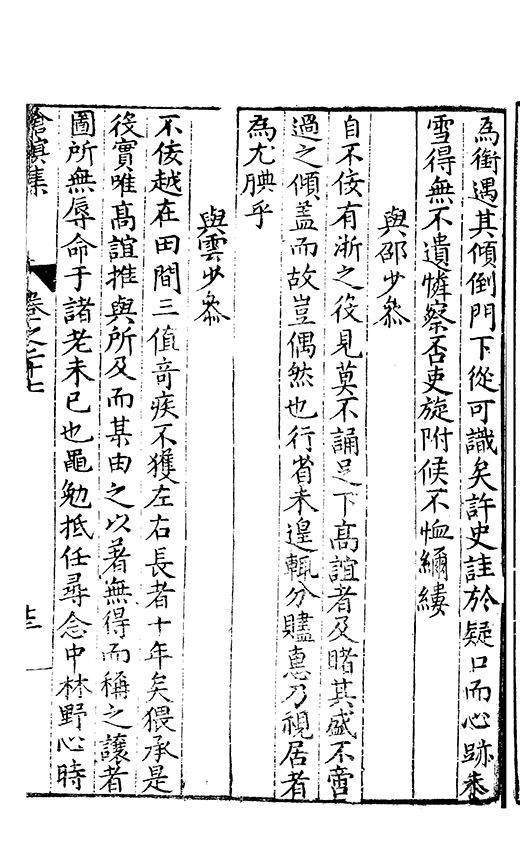 為銜遇其傾倒門下從可識矣許史詿於疑口而心跡未
雪得無不遺憐察否吏旋附候不恤纚縷
與邵少叅
自不佞有浙之役見莫不誦足下高誼者及睹其盛不啻
過之傾蓋而故豈偶然也行省未遑輒分贐惠乃視居者
為尤腆乎
與雲少叅
不佞越在田間三值竒疾不獲左右長者十年矣猥承是
役實唯高誼推與所及而某由之以著無得而稱之讓者
圖所無辱命于諸老未已也黽勉抵任尋念中林野心時
滄溟集
卷之二十七
十三